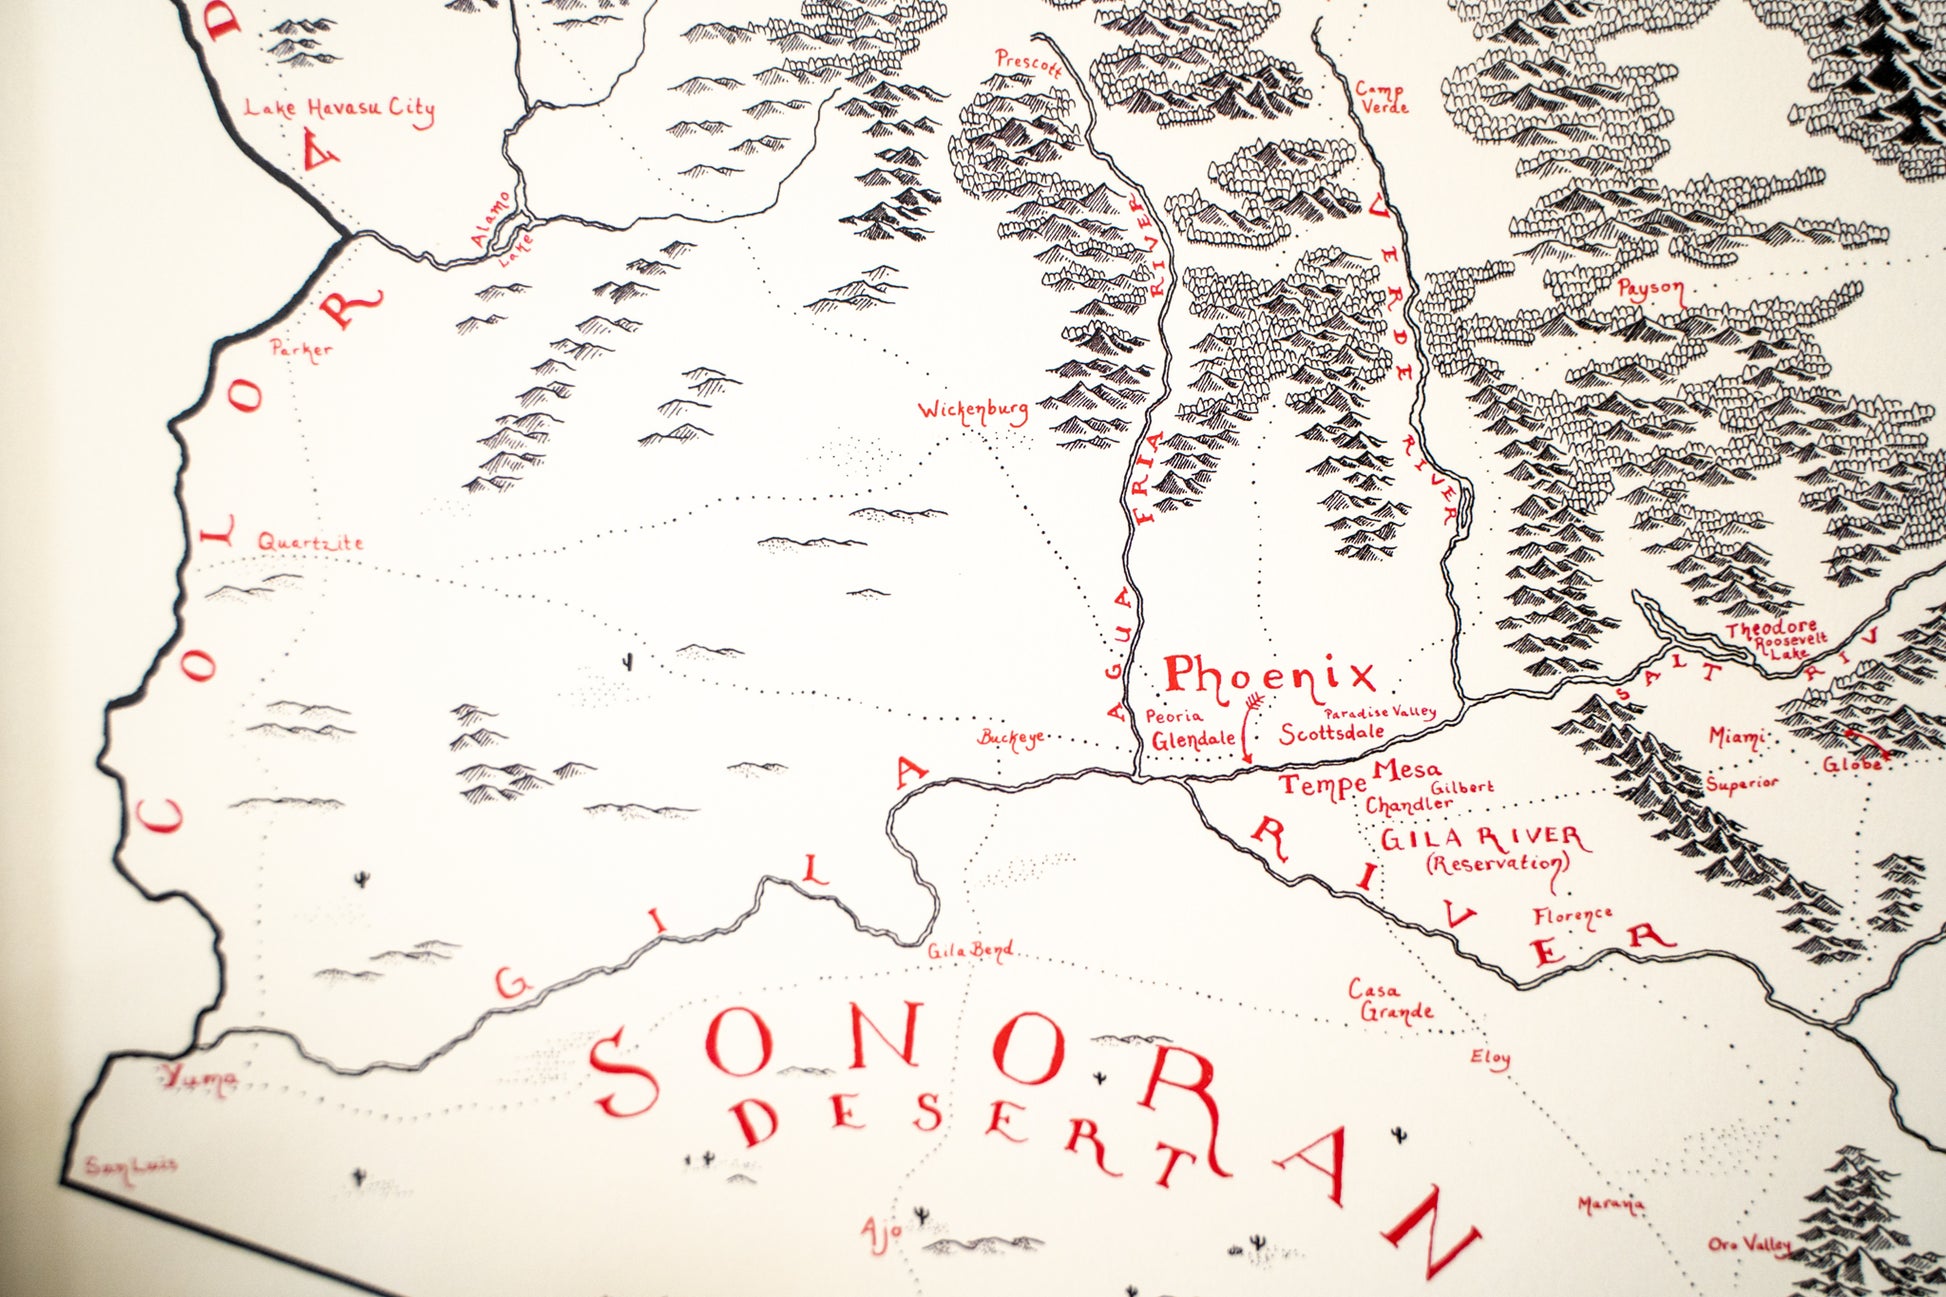 Prescott
Camp
Verde
Lake Havasu City
Alamo
Lake
COLORAD
Parker
Payson
Wickenburg
Quartzite
AGUA FRIA RIVER
VERDE RIVER
Theodore
Roosevelt
Lake
SALT RIV
Phoenix
Peoria
Paradise Valley
Glendale
Scottsdale
Buckeye
Miami
Globe
Superior
Tempe
Mesa
Gilbert
Chandler
GILA RIVER
(Reservation)
GILA RIVER
Florence
Gila Bend
Casa
Grande
Eloy
SONORAN
DESERT
Yuma
San Luis
Ajo
Marana
Oro Valley